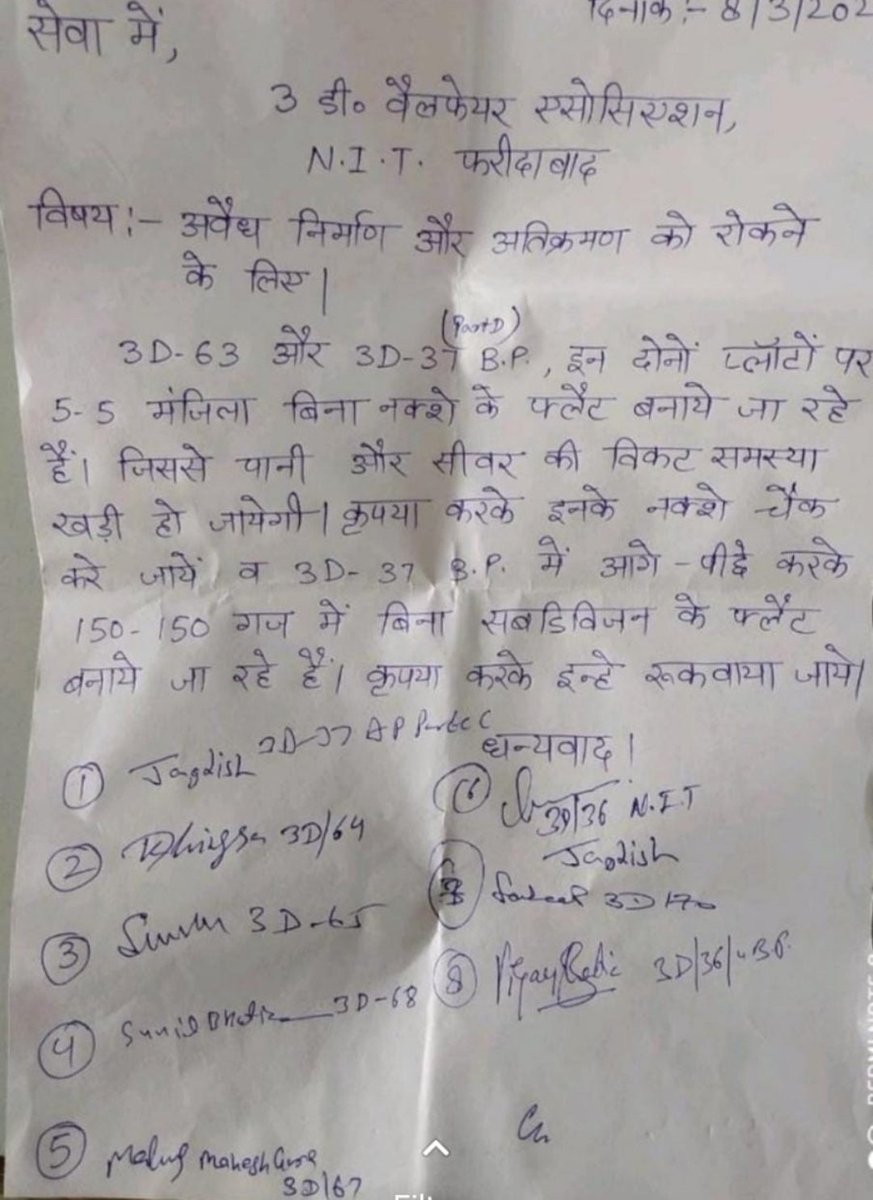 दिनांक :- 8/3/202
सेवा में,
3 डी० वैलफेयर एसोसिएशन,
N.I.T. फरीदाबाद
विषय :- अवैध निर्माण और अतिक्रमण को रोकने
के लिए।
(Part D)
3D-63 और 3D-37 B.P., इन दोनों प्लॉटों पर
5-5 मंजिला बिना नक्शे के फ्लैट बनाये जा रहे
हैं। जिससे पानी और सीवर की विकट समस्या
खड़ी हो जायेगी। कृपया करके इनके नक्शे चैक
करे जायें व 3D-37 B.P. में आगे-पीछे करके
150-150 गज में बिना सबडिविजन के फ्लैट
बनाये जा रहे हैं। कृपया करके इन्हे रूकवाया जाये।
धन्यवाद।
① Jagdish
② Dhingra 3D/64
③ 3D-65
④ Sunil Bhatia 3D-68
⑤ Mahesh
3D/67
⑥ 3D/36 N.I.T
Jagdish
3D
⑧ Vijay 3D/36 B.P.